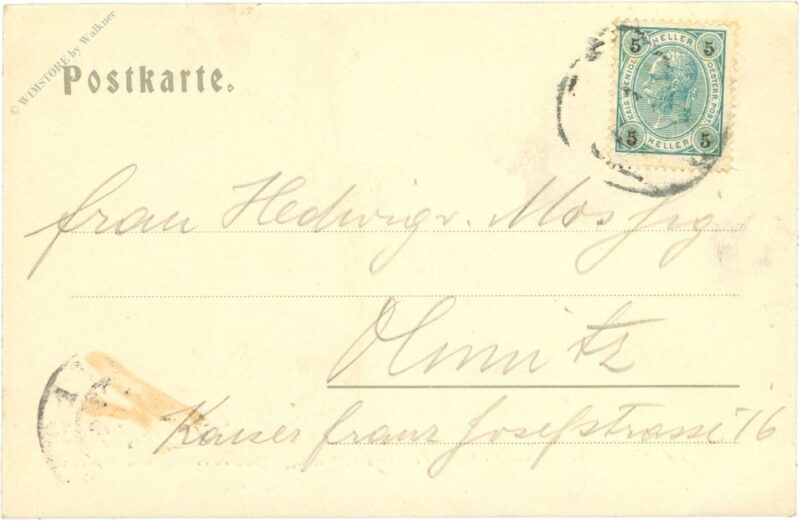 © WIMSTORE by Walkner
Postkarte.
5 HELLER 5
KAIS. KOENIGL. OESTERR. POST.
5 HELLER 5
Frau Hedwig v.
Olmütz
Kaiser Franz Josefstrasse 16